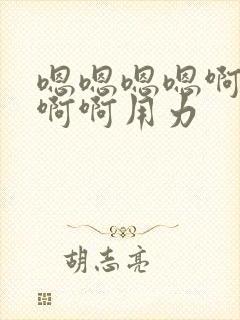 嗯嗯嗯嗯啊
啊啊用力
胡志亮